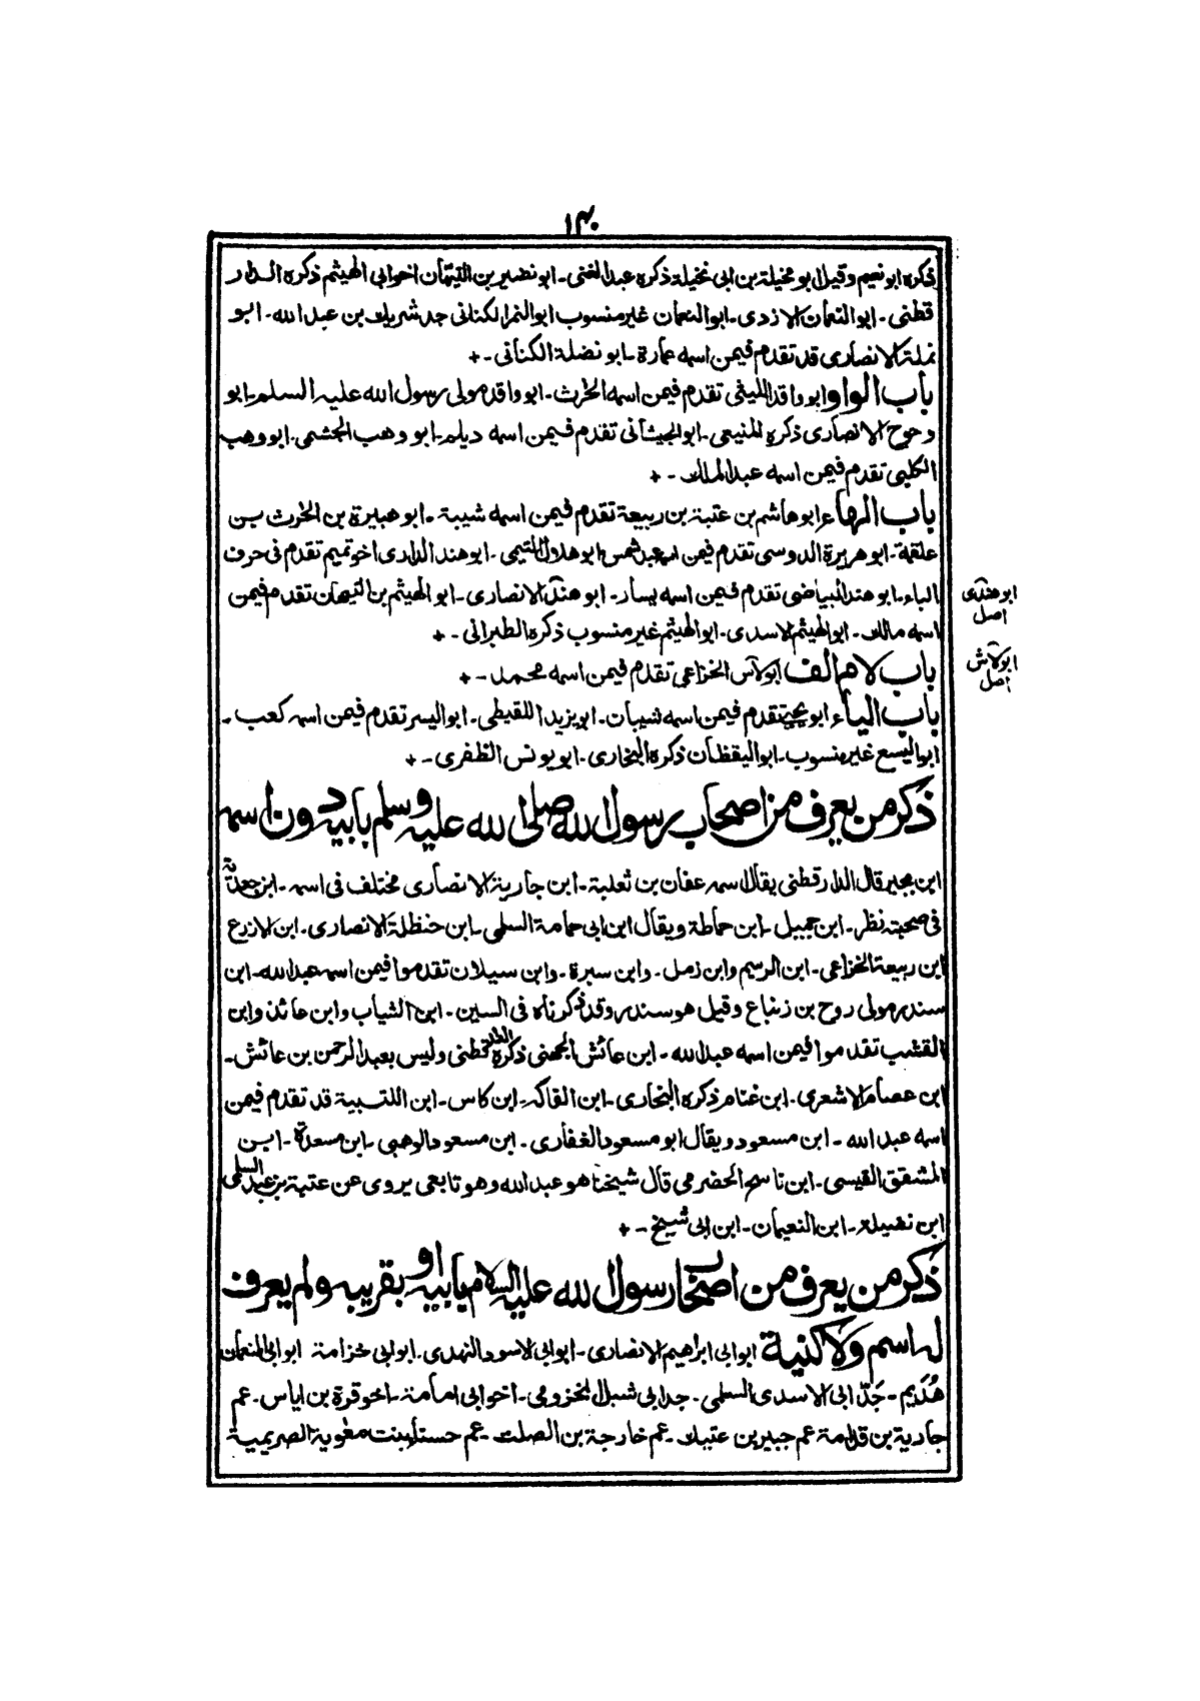 ١٣٠
ذكره ابو نعيم وقيل ابو مخيلة بن ابى نخيلة ذكره عبد الغنى ـ ابو نضير بن التيهان اخو ابى الهيثم ذكره الدار
قطنى ـ ابو النعمان الازدى ـ ابو النعمان غير منسوب ابو النمر الكنانى جد شريك بن عبد الله ـ ابو
نملة الانصارى قد تقدم فيمن اسمه عمارة ـ ابو نضلة الكنانى ـ +
باب الواو ابو واقد الليثى تقدم فيمن اسمه الحرث ـ ابو واقد مولى رسول الله عليه السلم ـ ابو
وحوح الانصارى ذكره المنيعى ـ ابو الجيشانى تقدم فيمن اسمه ديلم ـ ابو وهب الجشمى ـ ابو وهب
الكلبى تقدم فيمن اسمه عبد الملك ـ +
باب الهاء ابو هاشم بن عتبة بن ربيعة تقدم فيمن اسمه شيبة ـ ابو هبيرة بن الحرث بن
علقمة ـ ابو هريرة الدوسى تقدم فيمن اسمه عبد شمس ابو هلال التيمى ـ ابو هند الدارى اخو تميم تقدم فى حرف
الباء ـ ابو هند البياضى تقدم فيمن اسمه يسار ـ ابو هند الانصارى ـ ابو الهيثم بن التيهان تقدم فيمن
ابو هندى
اصل
اسمه مالك ـ ابو الهيثم الاسدى ـ ابو الهيثم غير منسوب ذكره الطبرانى ـ +
باب لام الف ابو لاس الخزاعى تقدم فيمن اسمه محمد ـ +
ابو لاش
اصل
باب الياء ابو يحيى تقدم فيمن اسمه شيبان ـ ابو يزيد اللقيطى ـ ابو اليسر تقدم فيمن اسمه كعب ـ
ابو اليسع غير منسوب ـ ابو اليقظان ذكره البخارى ـ ابو يونس الظفرى ـ +
ذكر من يعرف من اصحاب رسول الله صلى الله عليه وسلم بابيه دون اسمه
ابن بجير قال الدارقطنى يقال اسمه عفان بن ثعلبة ـ ابن جارية الانصارى مختلف فى اسمه ـ ابن جعدبة
فى صحبته نظر ـ ابن جميل ـ ابن حماطة ويقال ابن ابى حمامة السلمى ـ ابن حنظلة الانصارى ـ ابن الازرع
ابن ربيعة الخزاعى ـ ابن الرسيم وابن زمل ـ وابن سبرة ـ وابن سيلان تقدموا فيمن اسمه عبد الله ـ ابن
سندر مولى روح بن زنباع وقيل هو سندر وقد ذكرناه فى السين ـ ابن الشياب وابن عائذ وابن
القشب تقدموا فيمن اسمه عبد الله ـ ابن عائش الجهنى ذكره الدارقطنى وليس بعبد الرحمن بن عائش ـ
ابن عصام الاشعرى ـ ابن غنام ذكره البخارى ـ ابن الفاكه ـ ابن كاس ـ ابن اللتبية قد تقدم فيمن
اسمه عبد الله ـ ابن مسعود ويقال ابو مسعود الغفارى ـ ابن مسعود الوهبى ـ ابن مسعدة ـ ابن
المشقق القيسى ـ ابن ناسح الحضرمى قال شيخنا هو عبد الله وهو تابعى يروى عن عتبة بن عبد السلمى
ابن نضيلة ـ ابن النعيمان ـ ابن ابى شيخ ـ +
ذكر من يعرف من اصحاب رسول الله عليه السلام بابيه او بقريبه ولم يعرف
له اسم ولا كنية ابو ابى ابراهيم الانصارى ـ ابو ابى الاسود النهدى ـ ابو ابى خزامة ابو ابى النعمان
هُدَيم ـ جَدّ ابى الاسدى السلمى ـ جد ابى شبل المخزومى ـ اخو ابى امامة ـ اخو قرة بن اياس ـ عم
جارية بن قدامة عم جبير بن عتيك ـ عم خارجة بن الصلت ـ عم حسناء بنت معوية الصريمية